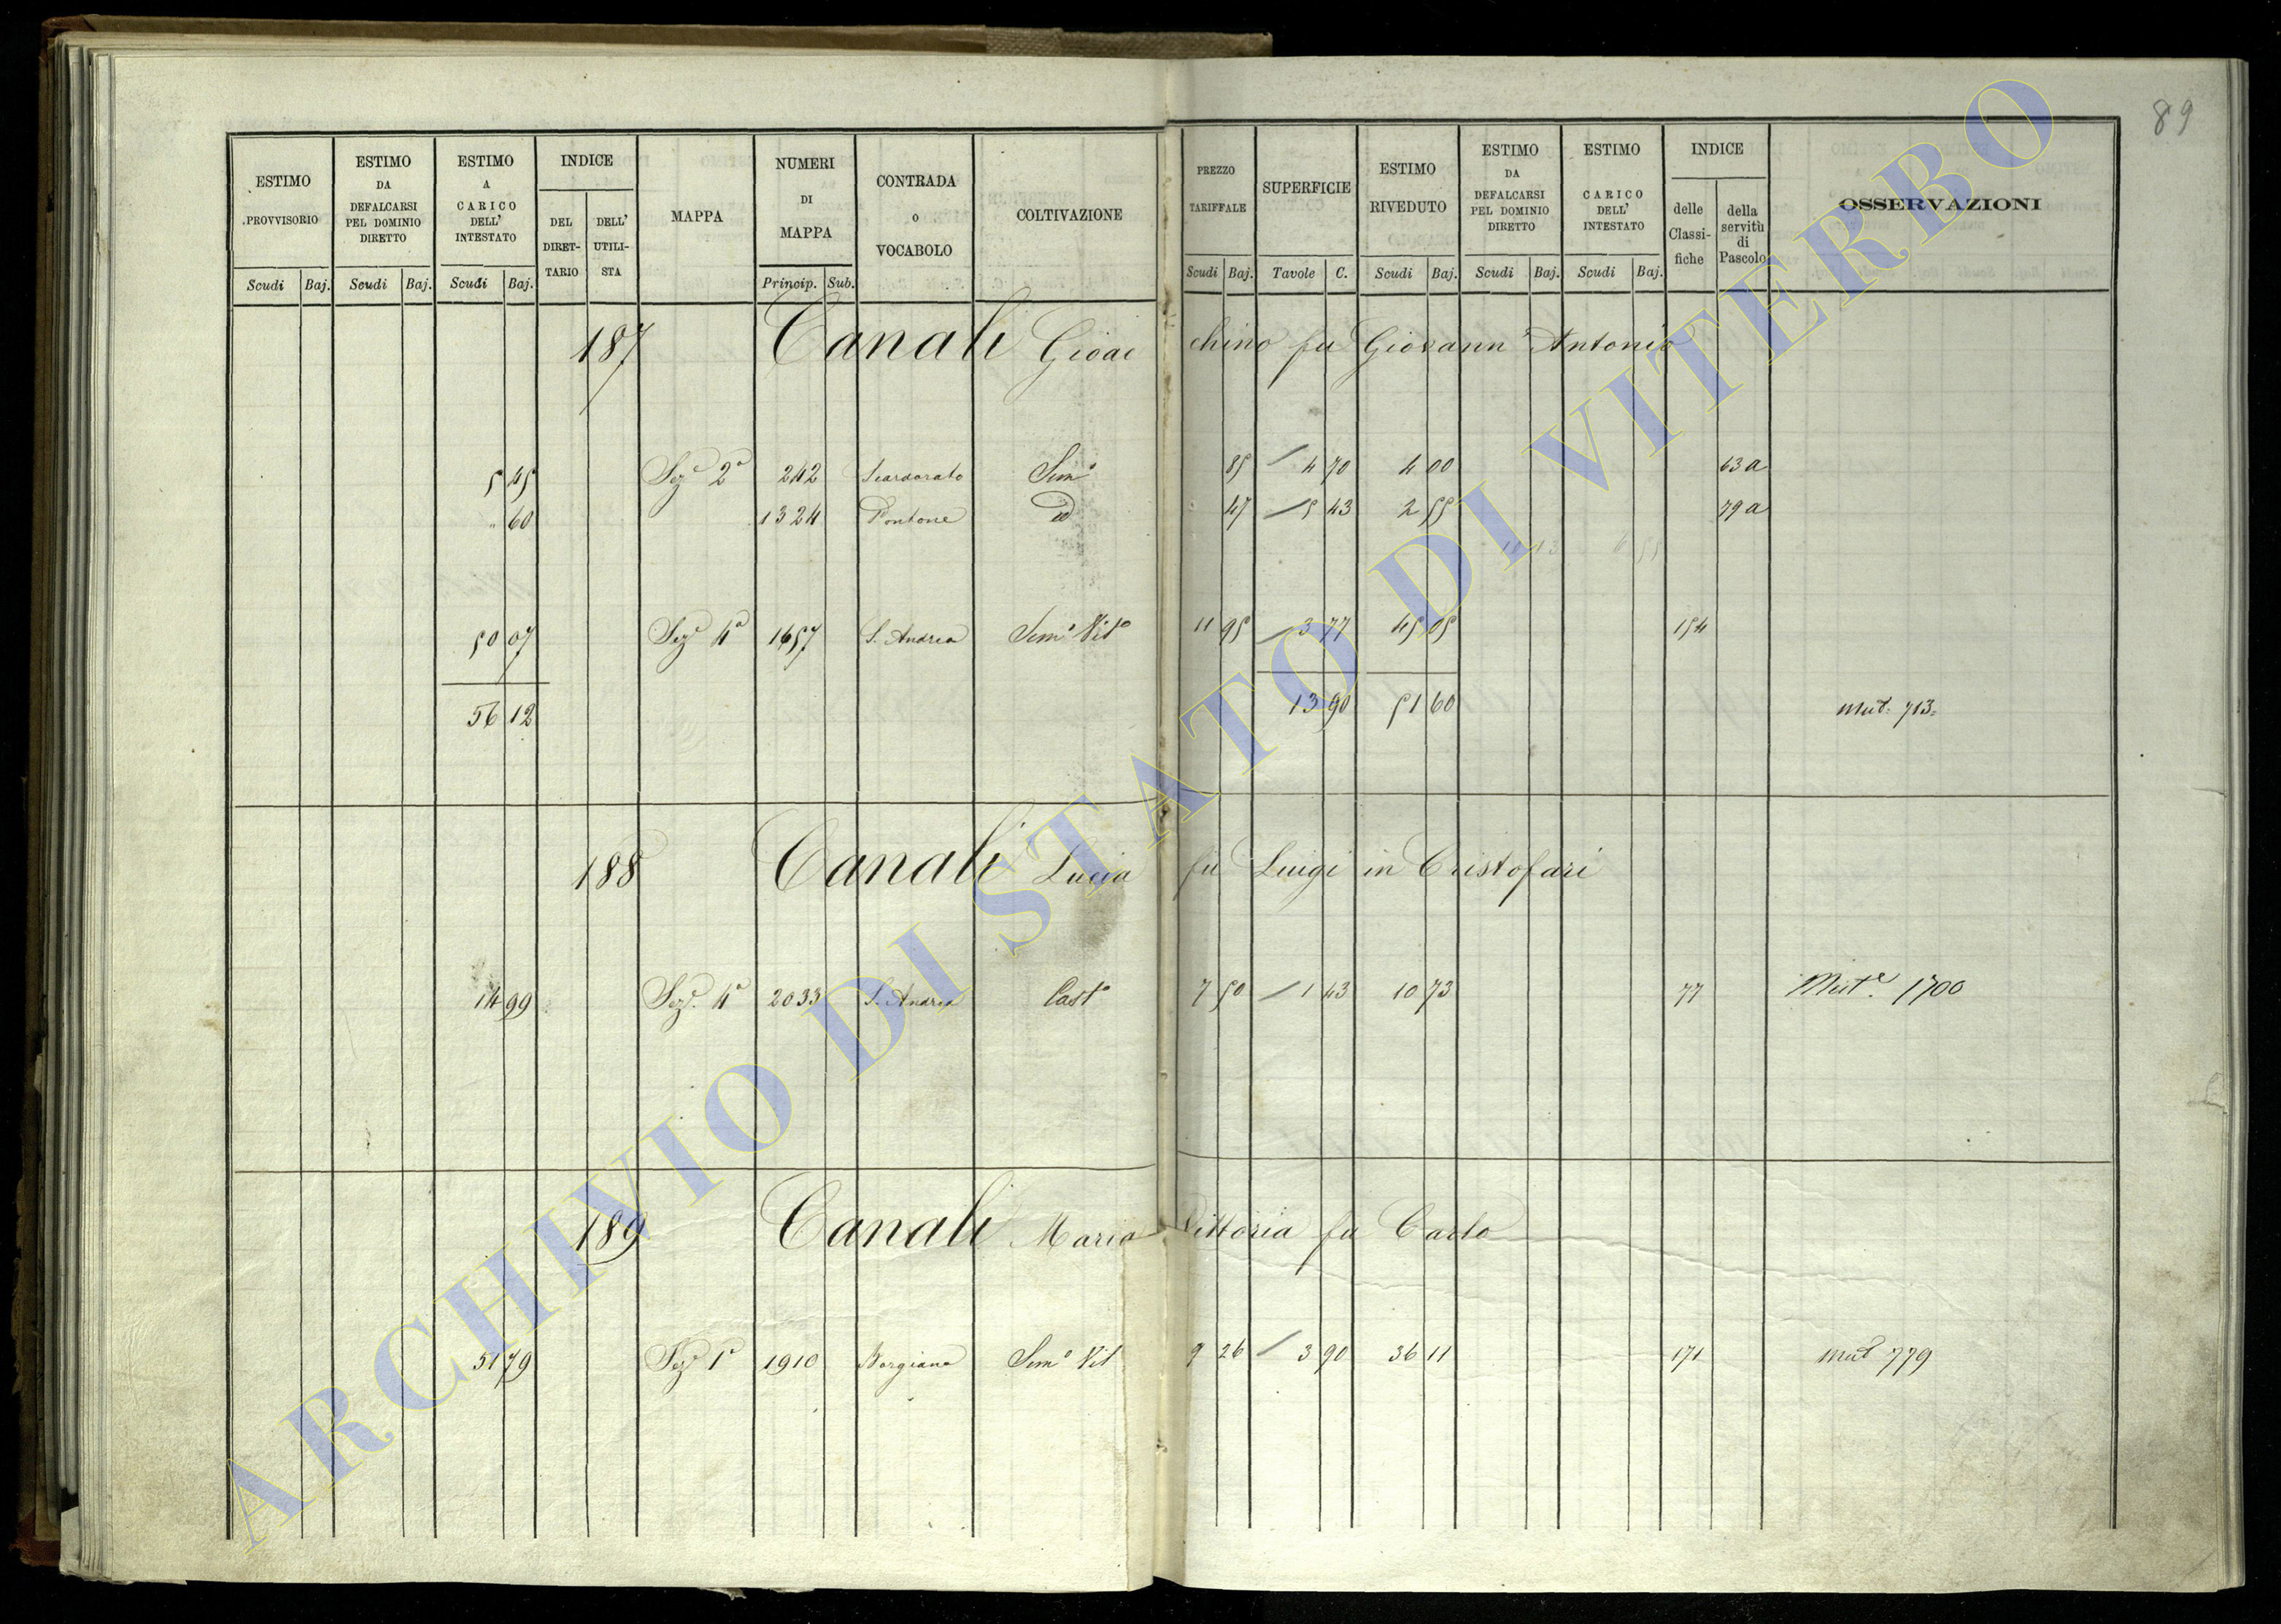 89
ESTIMO PROVVISORIO Scudi Baj.
ESTIMO DA DEFALCARSI PEL DOMINIO DIRETTO Scudi Baj.
ESTIMO A CARICO DELL' INTESTATO Scudi Baj.
INDICE DEL DIRETTARIO DELL' UTILISTA
MAPPA
NUMERI DI MAPPA Princip. Sub.
CONTRADA o VOCABOLO
COLTIVAZIONE
PREZZO TARIFFALE Scudi Baj.
SUPERFICIE Tavole C.
ESTIMO RIVEDUTO Scudi Baj.
ESTIMO DA DEFALCARSI PEL DOMINIO DIRETTO Scudi Baj.
ESTIMO CARICO DELL' INTESTATO Scudi Baj.
INDICE delle Classifiche della servitù di Pascolo
OSSERVAZIONI
187 Canali Gioacchino fu Giovann'Antonio
5 45 Sezᵉ 2ª 242 Scardorato Semº 85 4 70 4 00 63a
" 60 1324 Pontone Dº 47 5 43 2 55 79a
50 07 Sezᵉ 4ª 1657 S. Andrea Semº Vitº 11 95 3 77 45 05 154
56 12 13 90 51 60 Mut. 713
188 Canali Lucia fu Luigi in Cristofari
14 99 Sezᵉ 4ª 2033 S. Andrea Castº 7 50 1 43 10 73 77 Mutᵉ. 1700
189 Canali Maria Vittoria fu Carlo
51 79 Sezᵉ 1ª 1910 Borgiano Semº Vit 9 26 3 90 36 11 171 Mut 779
ARCHIVIO DI STATO DI VITERBO